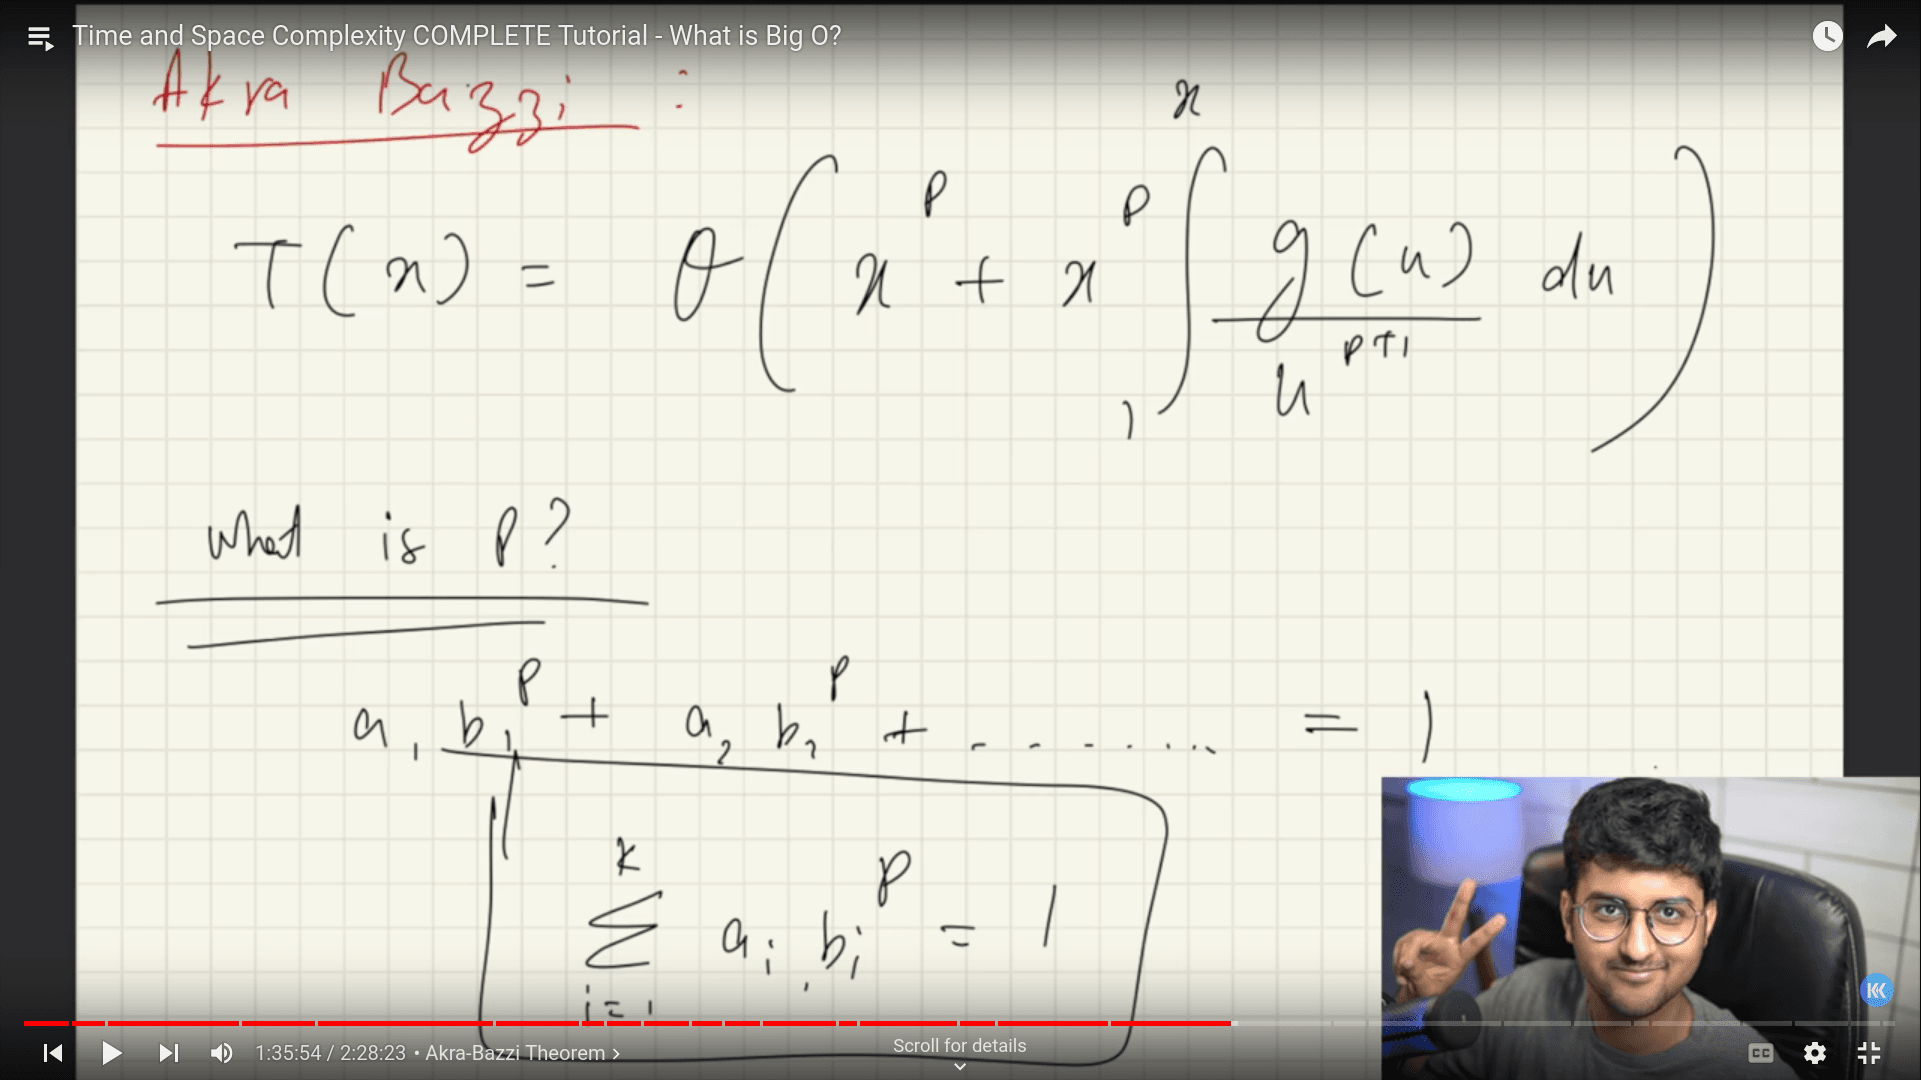 Time and Space Complexity COMPLETE Tutorial - What is Big O?
Akra Bazzi :
T(x) = θ( x^p + x^p ∫₁ˣ g(u)/u^(p+1) du )
What is p?
a₁ b₁^p + a₂ b₂^p + ......... = 1
∑ᵢ₌₁ᵏ aᵢ bᵢ^p = 1
1:35:54 / 2:28:23 • Akra-Bazzi Theorem ›
Scroll for details
CC